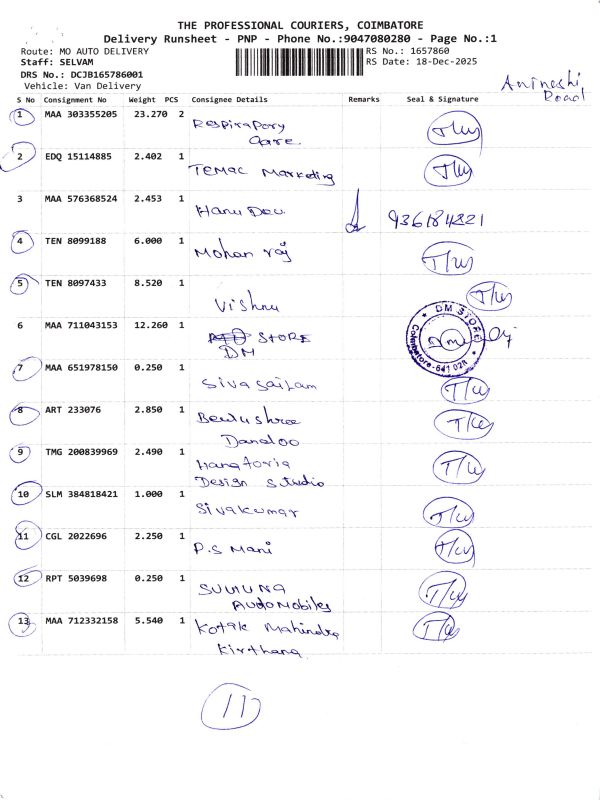 THE PROFESSIONAL COURIERS, COIMBATORE
Delivery Runsheet - PNP - Phone No.:9047080280 - Page No.:1
Route: MO AUTO DELIVERY
RS No.: 1657860
Staff: SELVAM
RS Date: 18-Dec-2025
DRS No.: DCJB165786001
Vehicle: Van Delivery
Road
S No Consignment No Weight PCS Consignee Details Remarks Seal & Signature
1 MAA 303355205 23.270 2 Respirapory
Care
2 EDQ 15114885 2.402 1 TEMAC Marketing
3 MAA 576368524 2.453 1 Hanu Dev
4 TEN 8099188 6.000 1 Mohan raj
5 TEN 8097433 8.520 1 Vishnu
6 MAA 711043153 12.260 1 STORE
DM
DM STORE
Coimbatore-641 028
7 MAA 651978150 0.250 1 Sivasailam
8 ART 233076 2.850 1
9 TMG 200839969 2.490 1
Design Studio
10 SLM 384818421 1.000 1 Sivakumar
11 CGL 2022696 2.250 1 P.S Mani
12 RPT 5039698 0.250 1
AudoMobiles
13 MAA 712332158 5.540 1 Kotak Mahindra
Kirthana
11